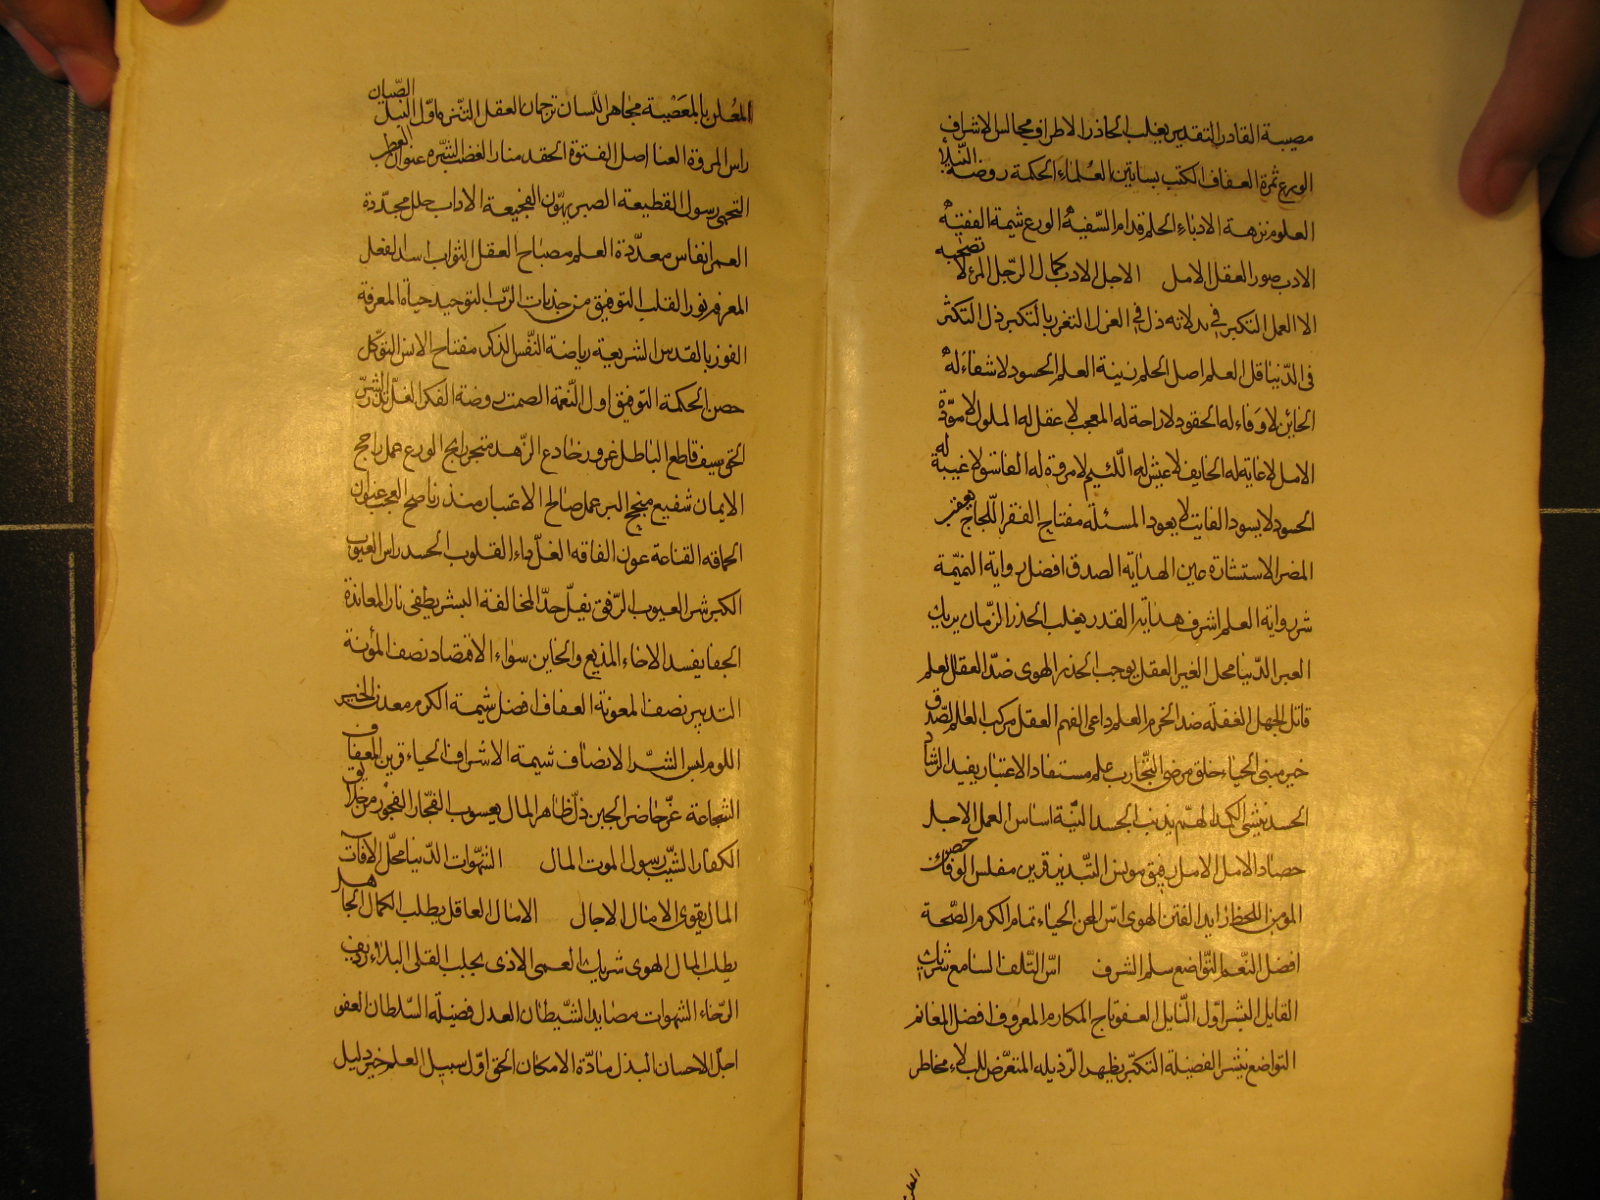 مصيبة القادر التقدير يغلب الحاذر الاطراف مجالس الاشراف
الورع ثمرة العفاف الكتب بساتين العلماء الحكمة روضة النبلاء
العلوم نزهة الادباء الحلم فدام السفيه الورع شيمة الفقيه
الادب صور العقل الامل الاجل الادب كمال الرجل المرء لا تصحبه
الا العمل التكبر في بدلاته ذل في العزل التغرير بالتكبر ذل التكثر
في الدنيا قل العلم اصل الحلم زينة العلم الحسود لا شفاء له
الخاين لا وفاء له الحقود لا راحة له المعجب لا عقل له الملول لا مودة له
الامل لا غاية له الخايف لا عيش له اللئيم لا مروة له الفاسق لا غيبة
الحسود لا يسود الفايت لا يعود المسئلة مفتاح الفقر اللجاج يعقب
المضر الاستشارة عين الهداية الصدق افضل رواية النميمة
شر رواية العلم اشرف هداية القدر يغلب الحذر الزمان يريك
العبر الدنيا محل الغير العقل يوجب الحذر الهوى ضد العقل العلم
قاتل الجهل الغفلة ضد الحزم العلم داعى الفهم العقل مركب العلم الصدق
خير مبنى الحياء خلق مرضى التجارب علم مستفاد الاعتبار يفيد الرشاد
الحسد ينشى الكمد الهم يذيب الجسد النية اساس العمل الاجل
حصاد الامل الامل رفيق مونس التبذير قرين مفلس الوفاء حصن
المؤمن اللحظ رايد الفتن الهوى اس المحن الحياء تمام الكرم الصحة
افضل النعم التواضع سلم الشرف اس التلف السامع شريك
القايل البشر اول النايل العفو تاج المكارم المعروف افضل المغانم
التواضع ينشر الفضيلة التكبر يظهر الرذيله المتعرض للبلاء مخاطر
المعلن
المعلن بالمعصية مجاهر اللسان ترجمان العقل التنزه اول النبل الصيان
راس المروة العنا اصل الفتوة الحقد منار الغضب الشره عنوان العطب
التجنى رسول القطيعة الصبر يهون الفجيعة الاداب حلل مجددة
العمر انفاس معددة العلم مصباح العقل الثواب اسد الفعل
المعرفه نور القلب التوفيق من جذبات الرب التوحيد حياة المعرفة
الفوز بالقدس الشريعة رياضة النفس الذكر مفتاح الانس التوكل
حصن الحكمة التوفيق اول النعمة الصمت روضة الفكر الغل بذر الشر
الحق سيف قاطع الباطل غرور خادع الزهد متجر رابح الورع عمل راجح
الايمان شفيع منجح البر عمل صالح الاعتبار منذر ناصح العجب عنوان
الحماقه القناعة عون الفاقه الغل داء القلوب الحسد راس العيوب
الكبر شر العيوب الرفق يفل حد المخالفة البشر يطفى نار المعاندة
الجفا يفسد الاخاء المذيع والخاين سواء الاقتصاد نصف المؤنة
التدبير نصف المعونة العفاف افضل شيمة الكرم معدن الخير
اللوم اس الشر الانصاف شيمة الاشراف الحياء قرين العفاف
الشجاعة عز حاضر الجبن ذل ظاهر المال يعسوب الفجار الفجور من خلايق
الكفار الشيب رسول الموت المال الشهوات الدنيا محل الافات
المال يقوى الامال الاجال الامال العاقل يطلب الكمال الجاهل
يطلب المال الهوى شريك العمى الاذى يجلب القلى البلاء رديف
الرخاء الشهوات مصايد الشيطان العدل فضيلة السلطان العفو
اجل الاحسان البذل مادة الامكان الحق اول سبيل العلم خير دليل